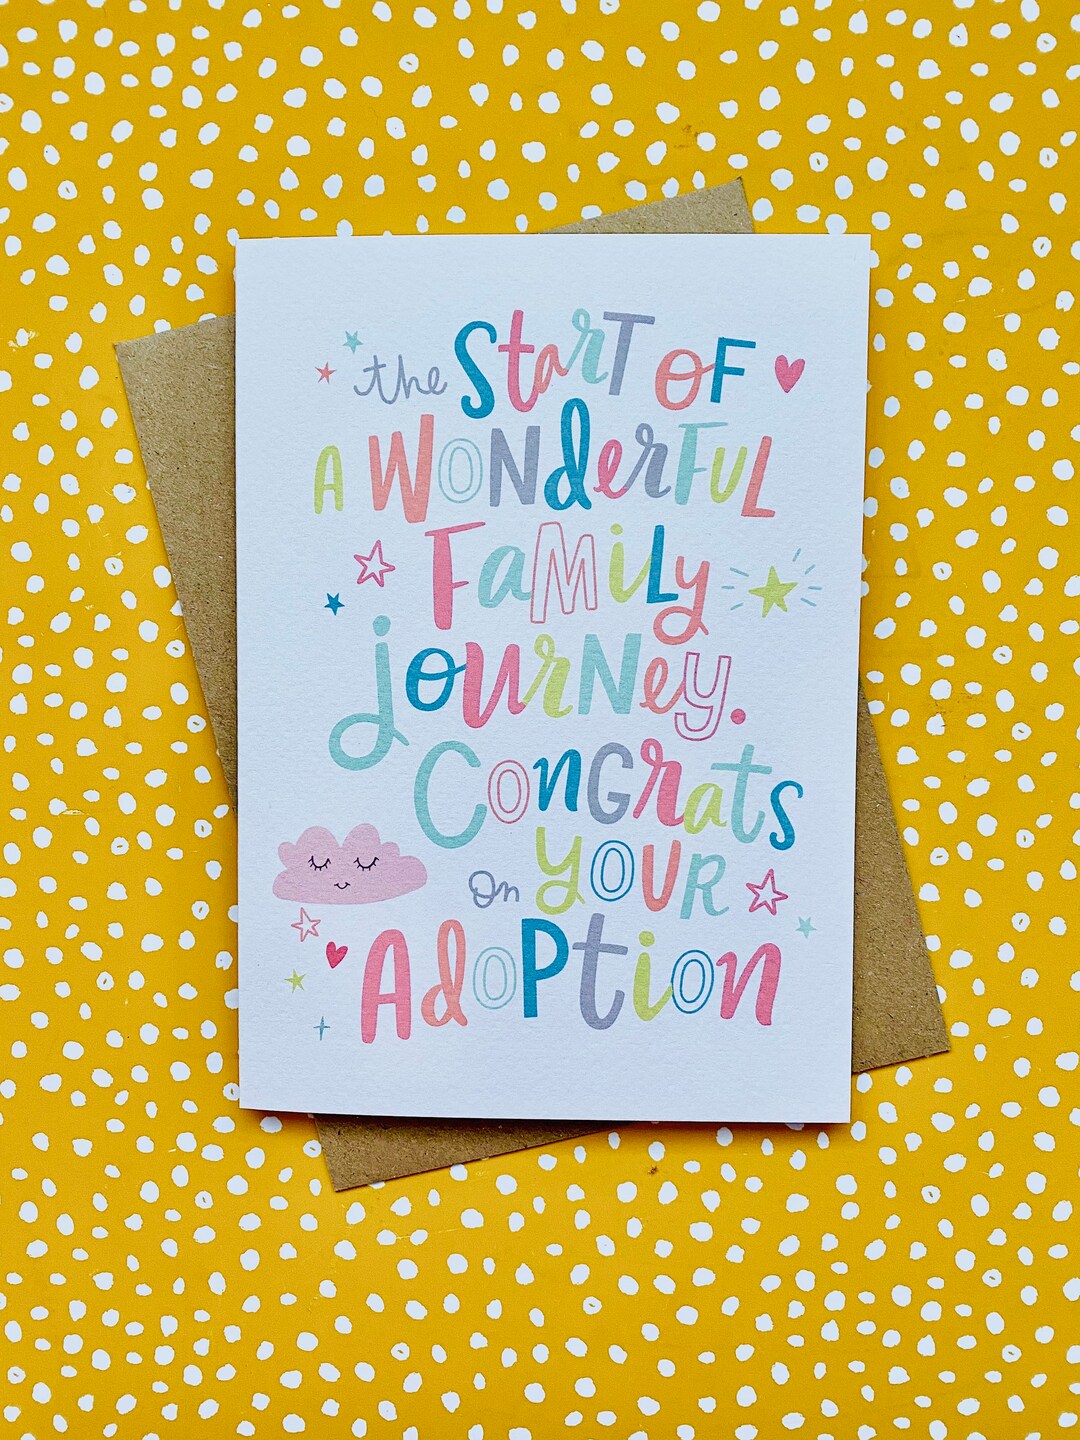 the StarT OF
A WONderFUL
FaMiLy
journey.
CONGrats
On yOUR
AdOPtion